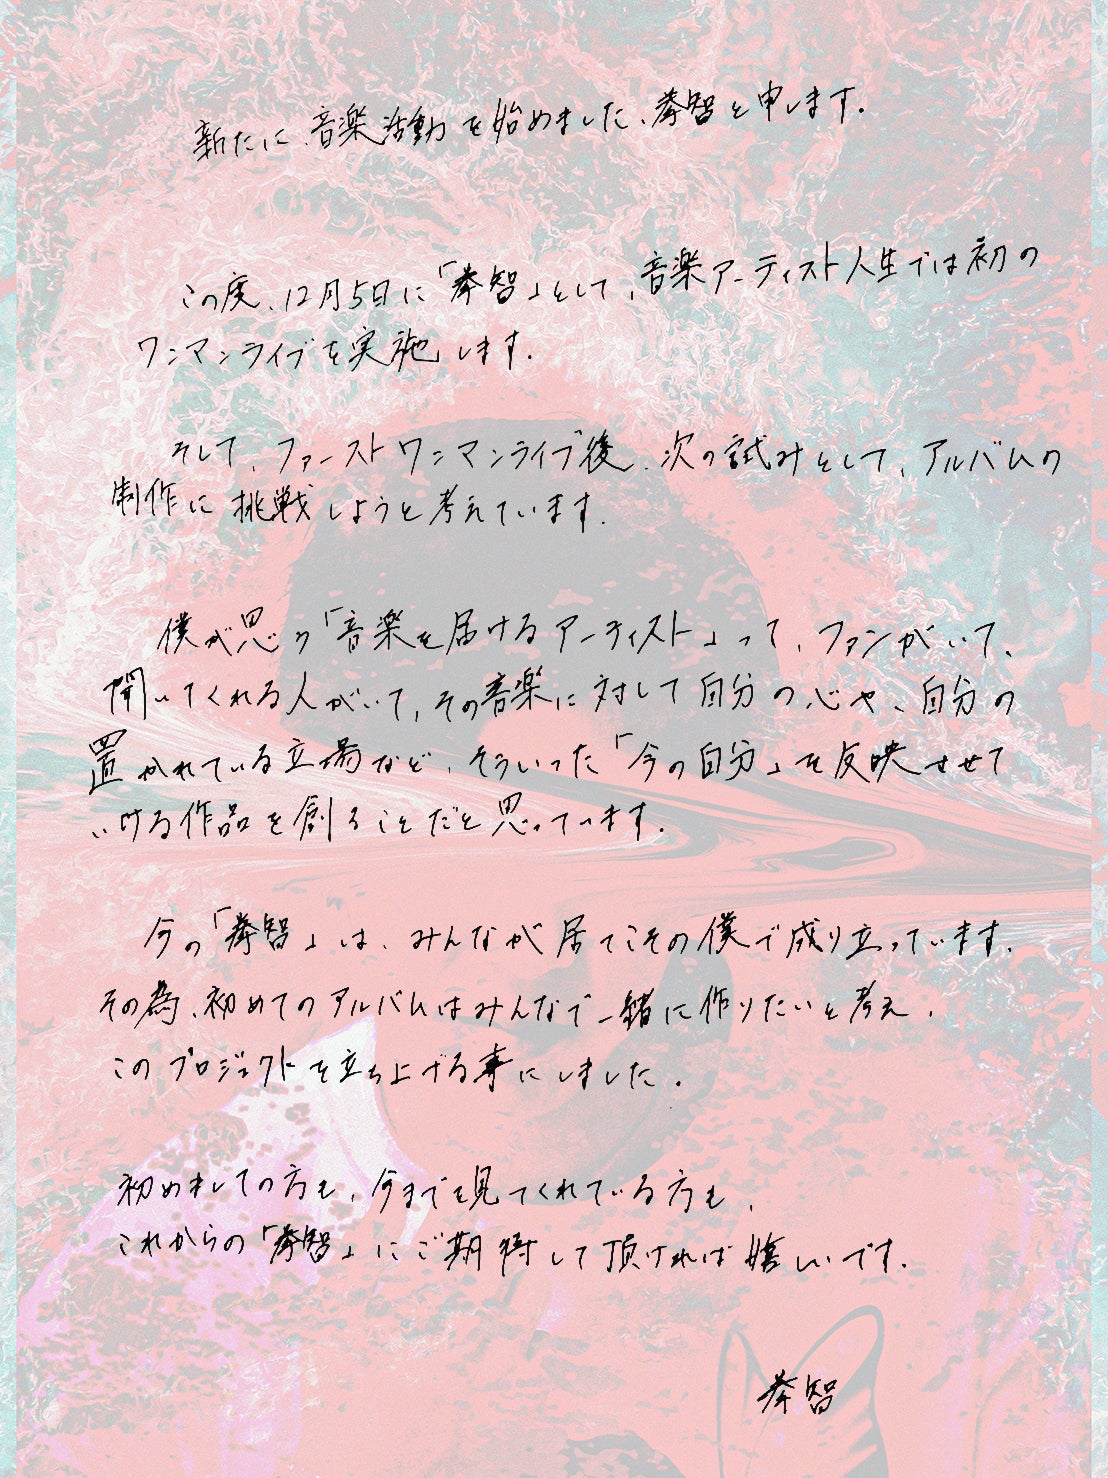 新たに、音楽活動を始めました、拳智と申します.
この度、12月5日に「拳智」として、音楽アーティスト人生では初の
ワンマンライブを実施します.
そして、ファーストワンマンライブ後、次の試みとして、アルバムの
制作に挑戦しようと考えています.
僕が思う「音楽を届けるアーティスト」って、ファンがいて、
聞いてくれる人がいて、その音楽に対して自分の心や、自分の
置かれている立場など、そういった「今の自分」を反映させて
いける作品を創ることだと思っています.
今の「拳智」は、みんなが居てこその僕で成り立っています.
その為、初めてのアルバムはみんなで一緒に作りたいと考え、
このプロジェクトを立ち上げる事にしました.
初めましての方も、今までを見てくれている方も、
これからの「拳智」にご期待して頂ければ嬉しいです.
拳智